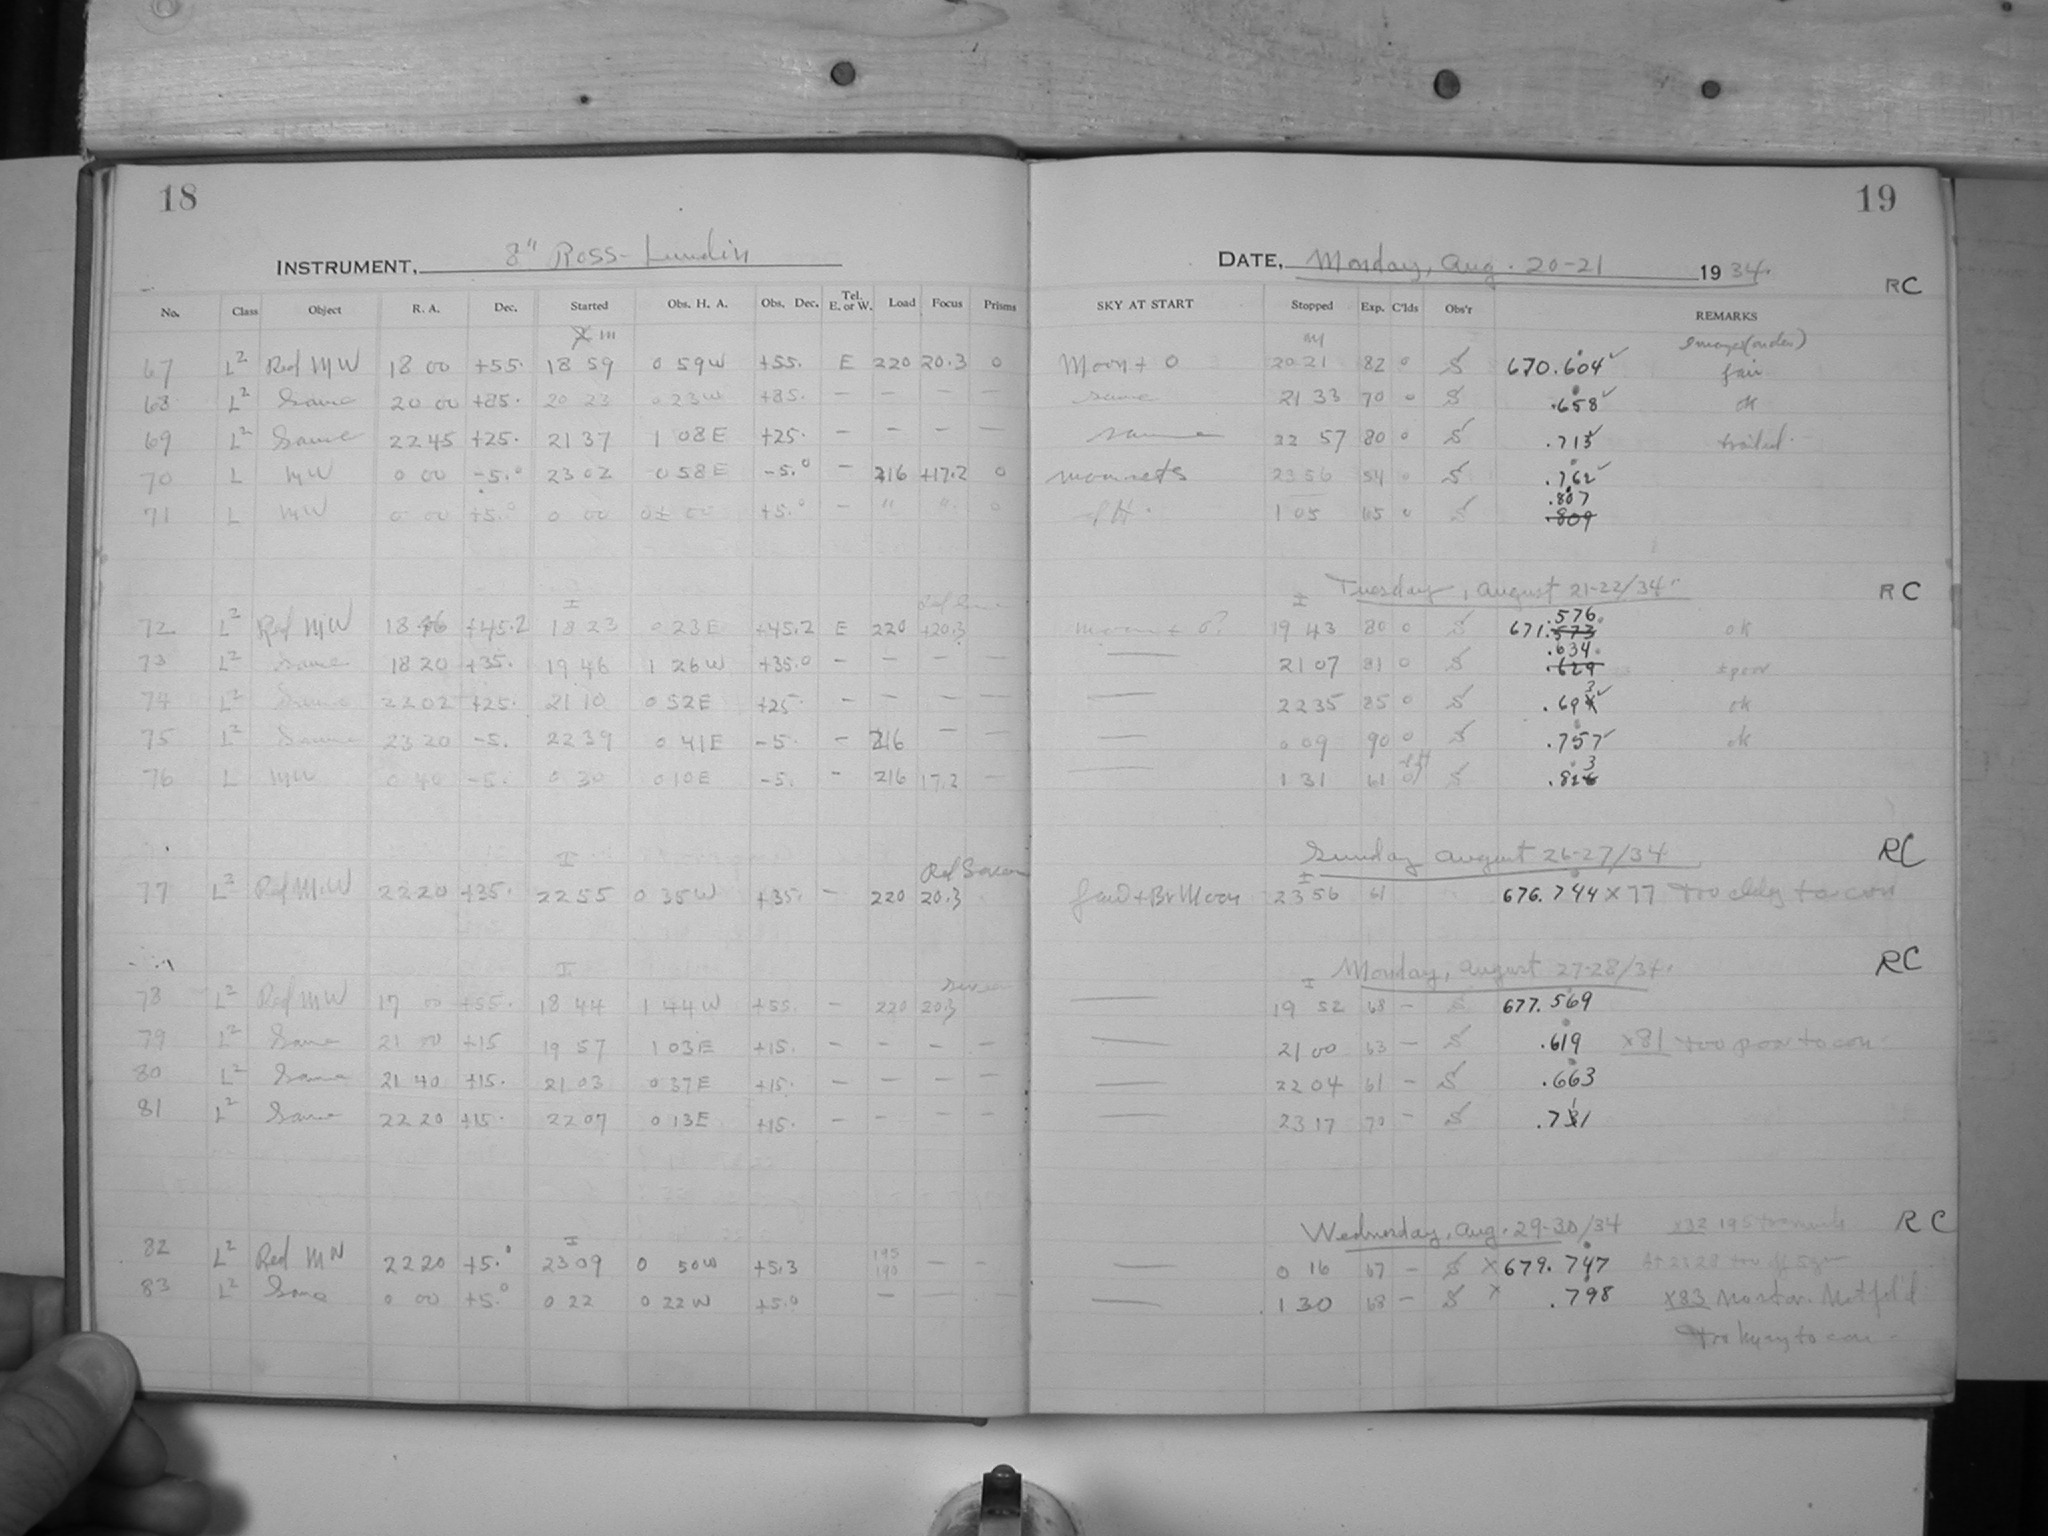 18
INSTRUMENT, 8" Ross-Lundin
No. Class Object R. A. Dec. Started Obs. H. A. Obs. Dec. Tel. E. or W. Load Focus Prisms
67 L2 Red MW 18 00 +55. 18 59 0 59W +55. E 220 20.3 0
68 L2 Same 20 00 +85. 20 23 0 23W +85. — — — —
69 L2 Same 22 45 +25. 21 37 1 08E +25. — — — —
70 L MW 0 00 -5.° 23 02 0 58E -5.° — 216 +17.2 0
71 L MW 0 00 +5.° 0 00 0± 00 +5.° — " " 0
72 L2 Red MW 18 46 +45.2 18 23 0 23E +45.2 E 220 +20.3
73 L2 Same 18 20 +35. 19 46 1 26W +35.0 — — — —
74 L2 Same 22 02 +25. 21 10 0 52E +25 — — — —
75 L2 Same 23 20 -5. 22 39 0 41E -5. — 216 — —
76 L MW 0 40 -5. 0 30 0 10E -5. — 216 17.2 —
Red Screen
77 L2 Red M.W 22 20 +35. 22 55 0 35W +35. — 220 20.3
screen
78 L2 Red MW 17 00 +55. 18 44 1 44W +55. — 220 20.3
79 L2 Same 21 00 +15 19 57 1 03E +15. — — — —
80 L2 Same 21 40 +15. 21 03 0 37E +15. — — — —
81 L2 Same 22 20 +15. 22 07 0 13E +15. — — — —
82 L2 Red MW 22 20 +5.° 23 09 0 50W +5.3 195 190 — —
83 L2 Same 0 00 +5.° 0 22 0 22W +5.0 — — — —
19
DATE, Monday, Aug. 20-21 1934.
RC
SKY AT START Stopped Exp. C'lds Obs'r REMARKS
Moon + 0 20 21 82 0 S 670.604 ✓ fair
same 21 33 70 0 S .658 ✓ ok
same 22 57 80 0 S .713 ✓ trailed.
moon sets 23 56 54 0 S .762 ✓
1 05 65 0 S .807 .809
Tuesday, August 21-22/34. RC
19 43 80 0 S 671.576 .573 ok
— 21 07 81 0 S .634 .629
— 22 35 85 0 S .693 ✓ ok
— 0 09 90 0 S .757 ✓ ok
— 1 31 61 0 S .823
Sunday August 26-27/34 RC
23 56 61 676.744 x77
Monday, August 27-28/34. RC
— 19 52 68 — S 677.569
— 21 00 63 — S .619 x81 too poor to con
— 22 04 61 — S .663
— 23 17 70 — S .731
Wednesday, Aug. 29-30/34 RC
— 0 16 67 — S x 679.747
— 1 30 68 — S x .798 x83